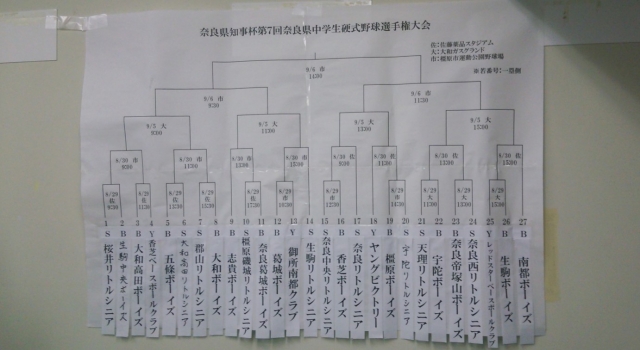 奈良県知事杯第7回奈良県中学生硬式野球選手権大会
佐:佐藤薬品スタジアム
大:大和ガスグランド
市:橿原市運動公園野球場
※若番号:一塁側
9/6 市
14:00
9/6 市
9:00
9/6 市
11:30
9/5 大
9:00
9/5 大
11:00
9/5 大
13:00
9/5 大
15:00
8/30 市
8/30 市
8/30 市
13:00
8/30 市
15:30
8/30 佐
8/30 佐
8/30 佐
8/30 佐
8/29
佐
8/29
佐
8/29
佐
8/29
佐
8/29
佐
8/29
市
8/29
市
8/29
佐
8/29
大
8/29
大
8/29
大
1 S 桜井リトルシニア
2 B 生駒中央ボーイズ
3 B 大和高田ボーイズ
4 Y 香芝ベースボールクラブ
5 B 五條ボーイズ
6 S 大和高田リトルシニア
7 S 郡山リトルシニア
8 B 大和ボーイズ
9 B 志貴ボーイズ
10 S 橿原磯城リトルシニア
11 B 奈良葛城ボーイズ
12 B 葛城ボーイズ
13 Y 御所南都クラブ
14 S 生駒リトルシニア
15 S 奈良中央リトルシニア
16 B 香芝ボーイズ
17 S 奈良リトルシニア
18 Y ヤングビクトリー
19 B 橿原ボーイズ
20 S 宇陀リトルシニア
21 S 天理リトルシニア
22 B 宇陀ボーイズ
23 B 奈良帝塚山ボーイズ
24 S 奈良西リトルシニア
25 Y レッドスターベースボールクラブ
26 B 生駒ボーイズ
27 B 南都ボーイズ